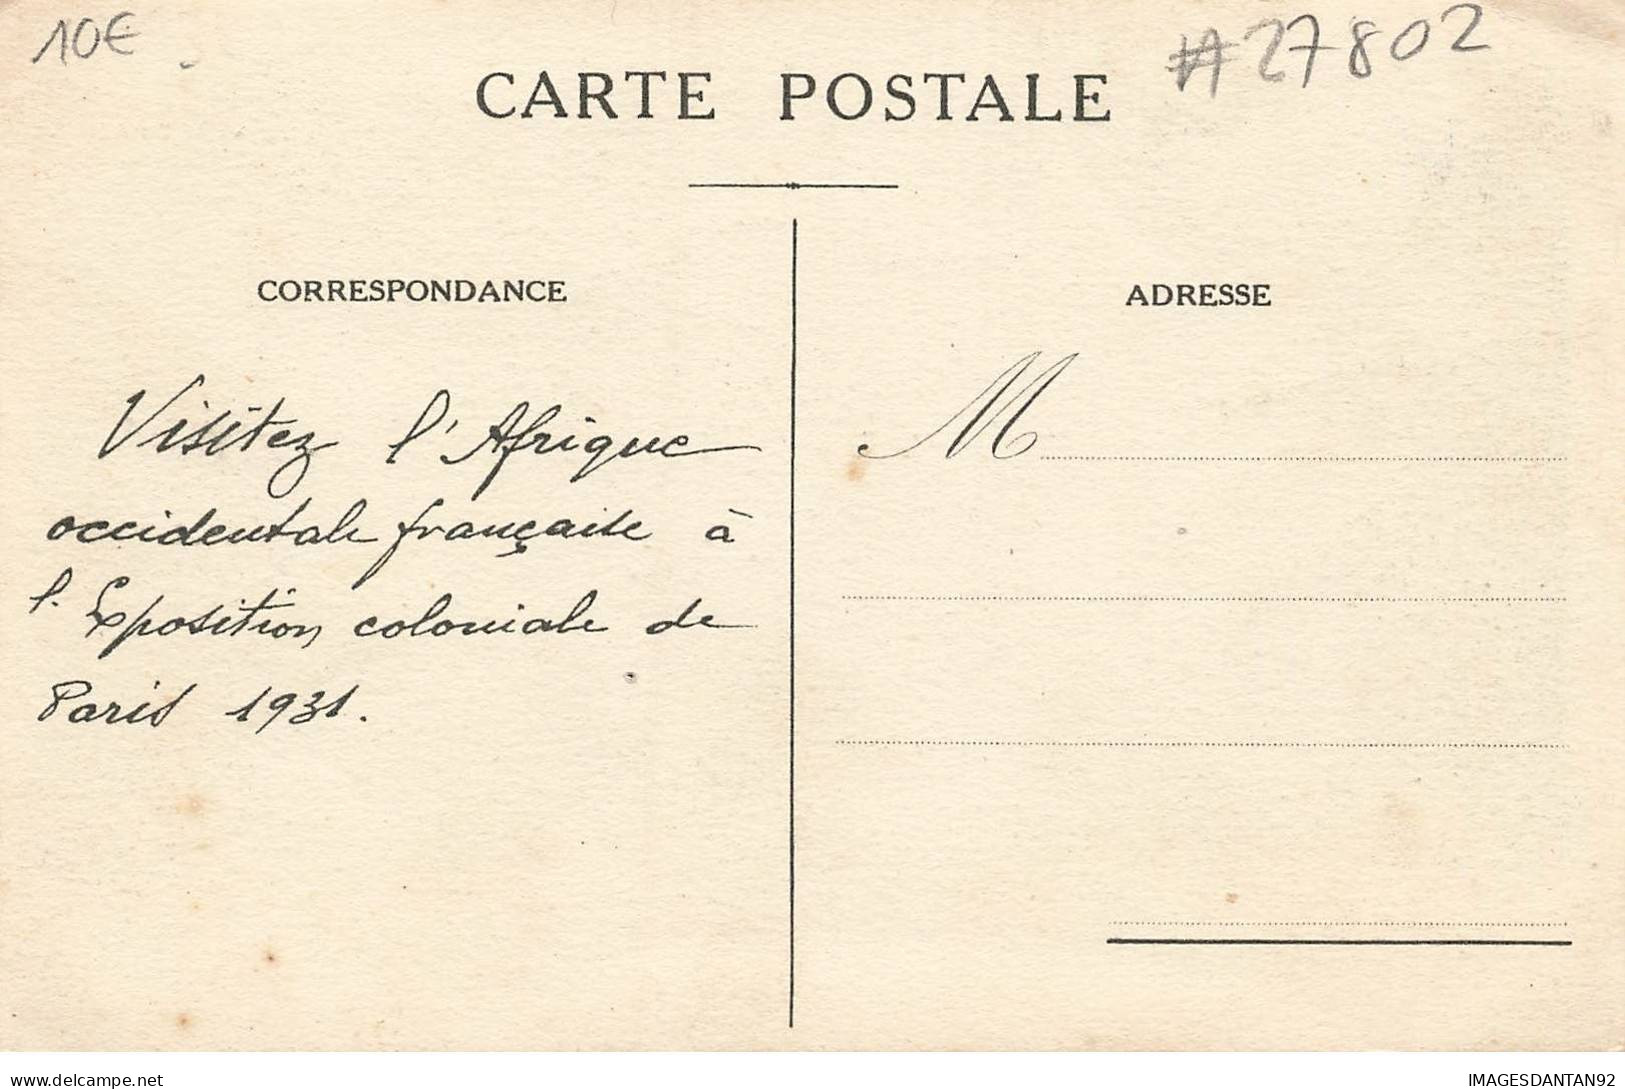 10€
#27802
CARTE POSTALE
CORRESPONDANCE
Visitez l'Afrique
occidentale française à
l'Exposition coloniale de
Paris 1931.
ADRESSE
M
www.delcampe.net
IMAGESDANTAN92